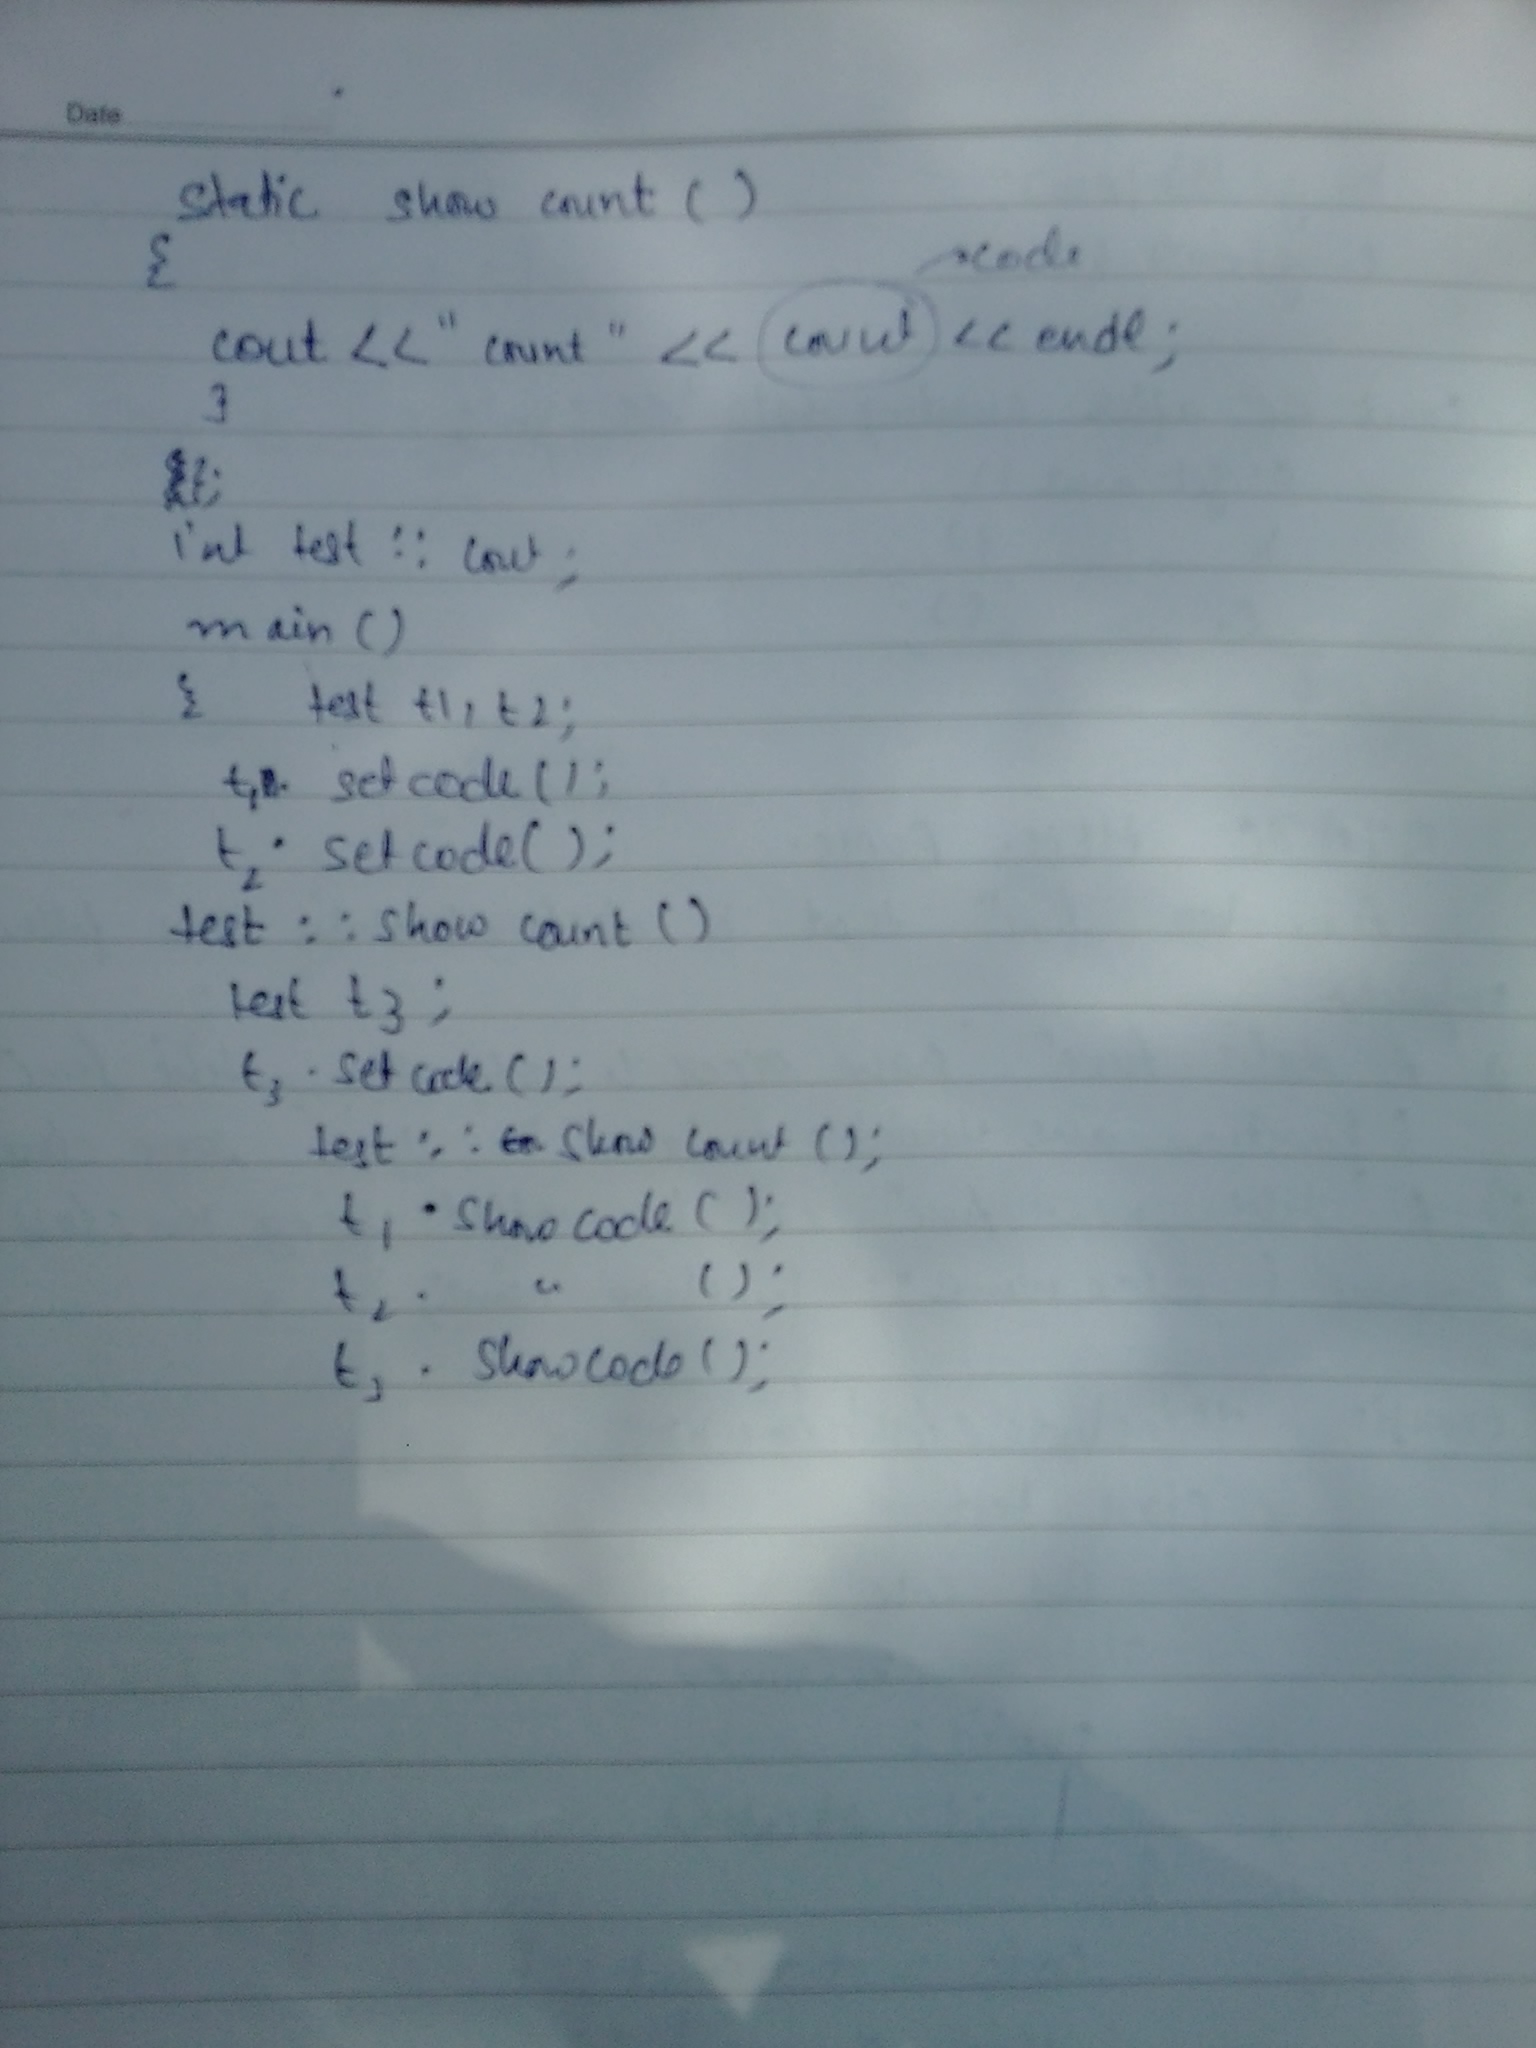 Date
static show count ( )
{
→ code
cout << " count " << count << endl ;
}
};
int test :: cout ;
main ( )
{ test t1, t2;
t1. setcode ( );
t2. setcode ( );
test :: show count ( )
test t3 ;
t3 . set code ( );
test :: show count ( );
t1 . Show code ( );
t2 . " ( );
t3 . Showcode ( );